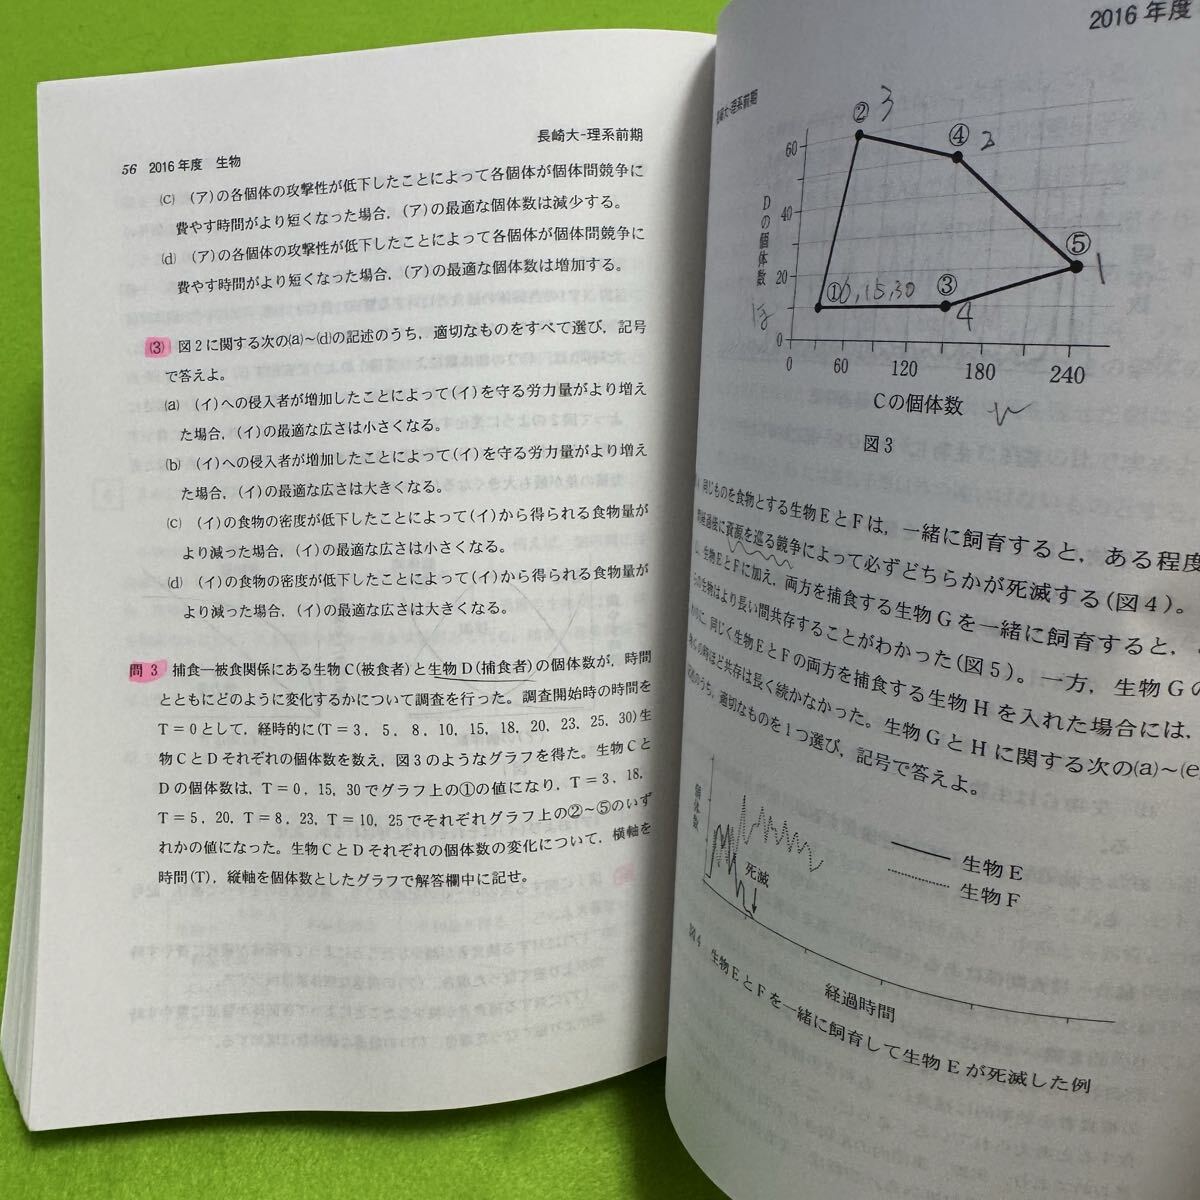 56 2016年度 生物
長崎大-理系前期
(c) (ア)の各個体の攻撃性が低下したことによって各個体が個体間競争に
費やす時間がより短くなった場合，(ア)の最適な個体数は減少する。
(d) (ア)の各個体の攻撃性が低下したことによって各個体が個体間競争に
費やす時間がより短くなった場合，(ア)の最適な個体数は増加する。
(3) 図2に関する次の(a)～(d)の記述のうち，適切なものをすべて選び，記号
で答えよ。
(a) (イ)への侵入者が増加したことによって(イ)を守る労力量がより増え
た場合，(イ)の最適な広さは小さくなる。
(b) (イ)への侵入者が増加したことによって(イ)を守る労力量がより増え
た場合，(イ)の最適な広さは大きくなる。
(c) (イ)の食物の密度が低下したことによって(イ)から得られる食物量が
より減った場合，(イ)の最適な広さは小さくなる。
(d) (イ)の食物の密度が低下したことによって(イ)から得られる食物量が
より減った場合，(イ)の最適な広さは大きくなる。
問3 捕食―被食関係にある生物C(被食者)と生物D(捕食者)の個体数が，時間
とともにどのように変化するかについて調査を行った。調査開始時の時間を
T＝0として，経時的に(T＝3，5，8，10，15，18，20，23，25，30)生
物CとDそれぞれの個体数を数え，図3のようなグラフを得た。生物Cと
Dの個体数は，T＝0，15，30でグラフ上の①の値になり，T＝3，18，
T＝5，20，T＝8，23，T＝10，25でそれぞれグラフ上の②～⑤のいず
れかの値になった。生物CとDそれぞれの個体数の変化について，横軸を
時間(T)，縦軸を個体数としたグラフで解答欄中に記せ。
2016年度
長崎大-理系前期
② 3
④
⑤ 1
① 0,15,30
③ 4
60
40
20
0
Dの個体数
0 60 120 180 240
Cの個体数
図3
同じものを食物とする生物EとFは，一緒に飼育すると，ある程度
経過後に資源を巡る競争によって必ずどちらかが死滅する(図4)。
生物EとFに加え，両方を捕食する生物Gを一緒に飼育すると，
の生物はより長い間共存することがわかった(図5)。一方，生物Gの
に，同じく生物EとFの両方を捕食する生物Hを入れた場合には，
の時ほど共存は長く続かなかった。生物GとHに関する次の(a)～(e
のうち，適切なものを1つ選び，記号で答えよ。
個体数
死滅
生物E
生物F
経過時間
図4 生物EとFを一緒に飼育して生物Eが死滅した例